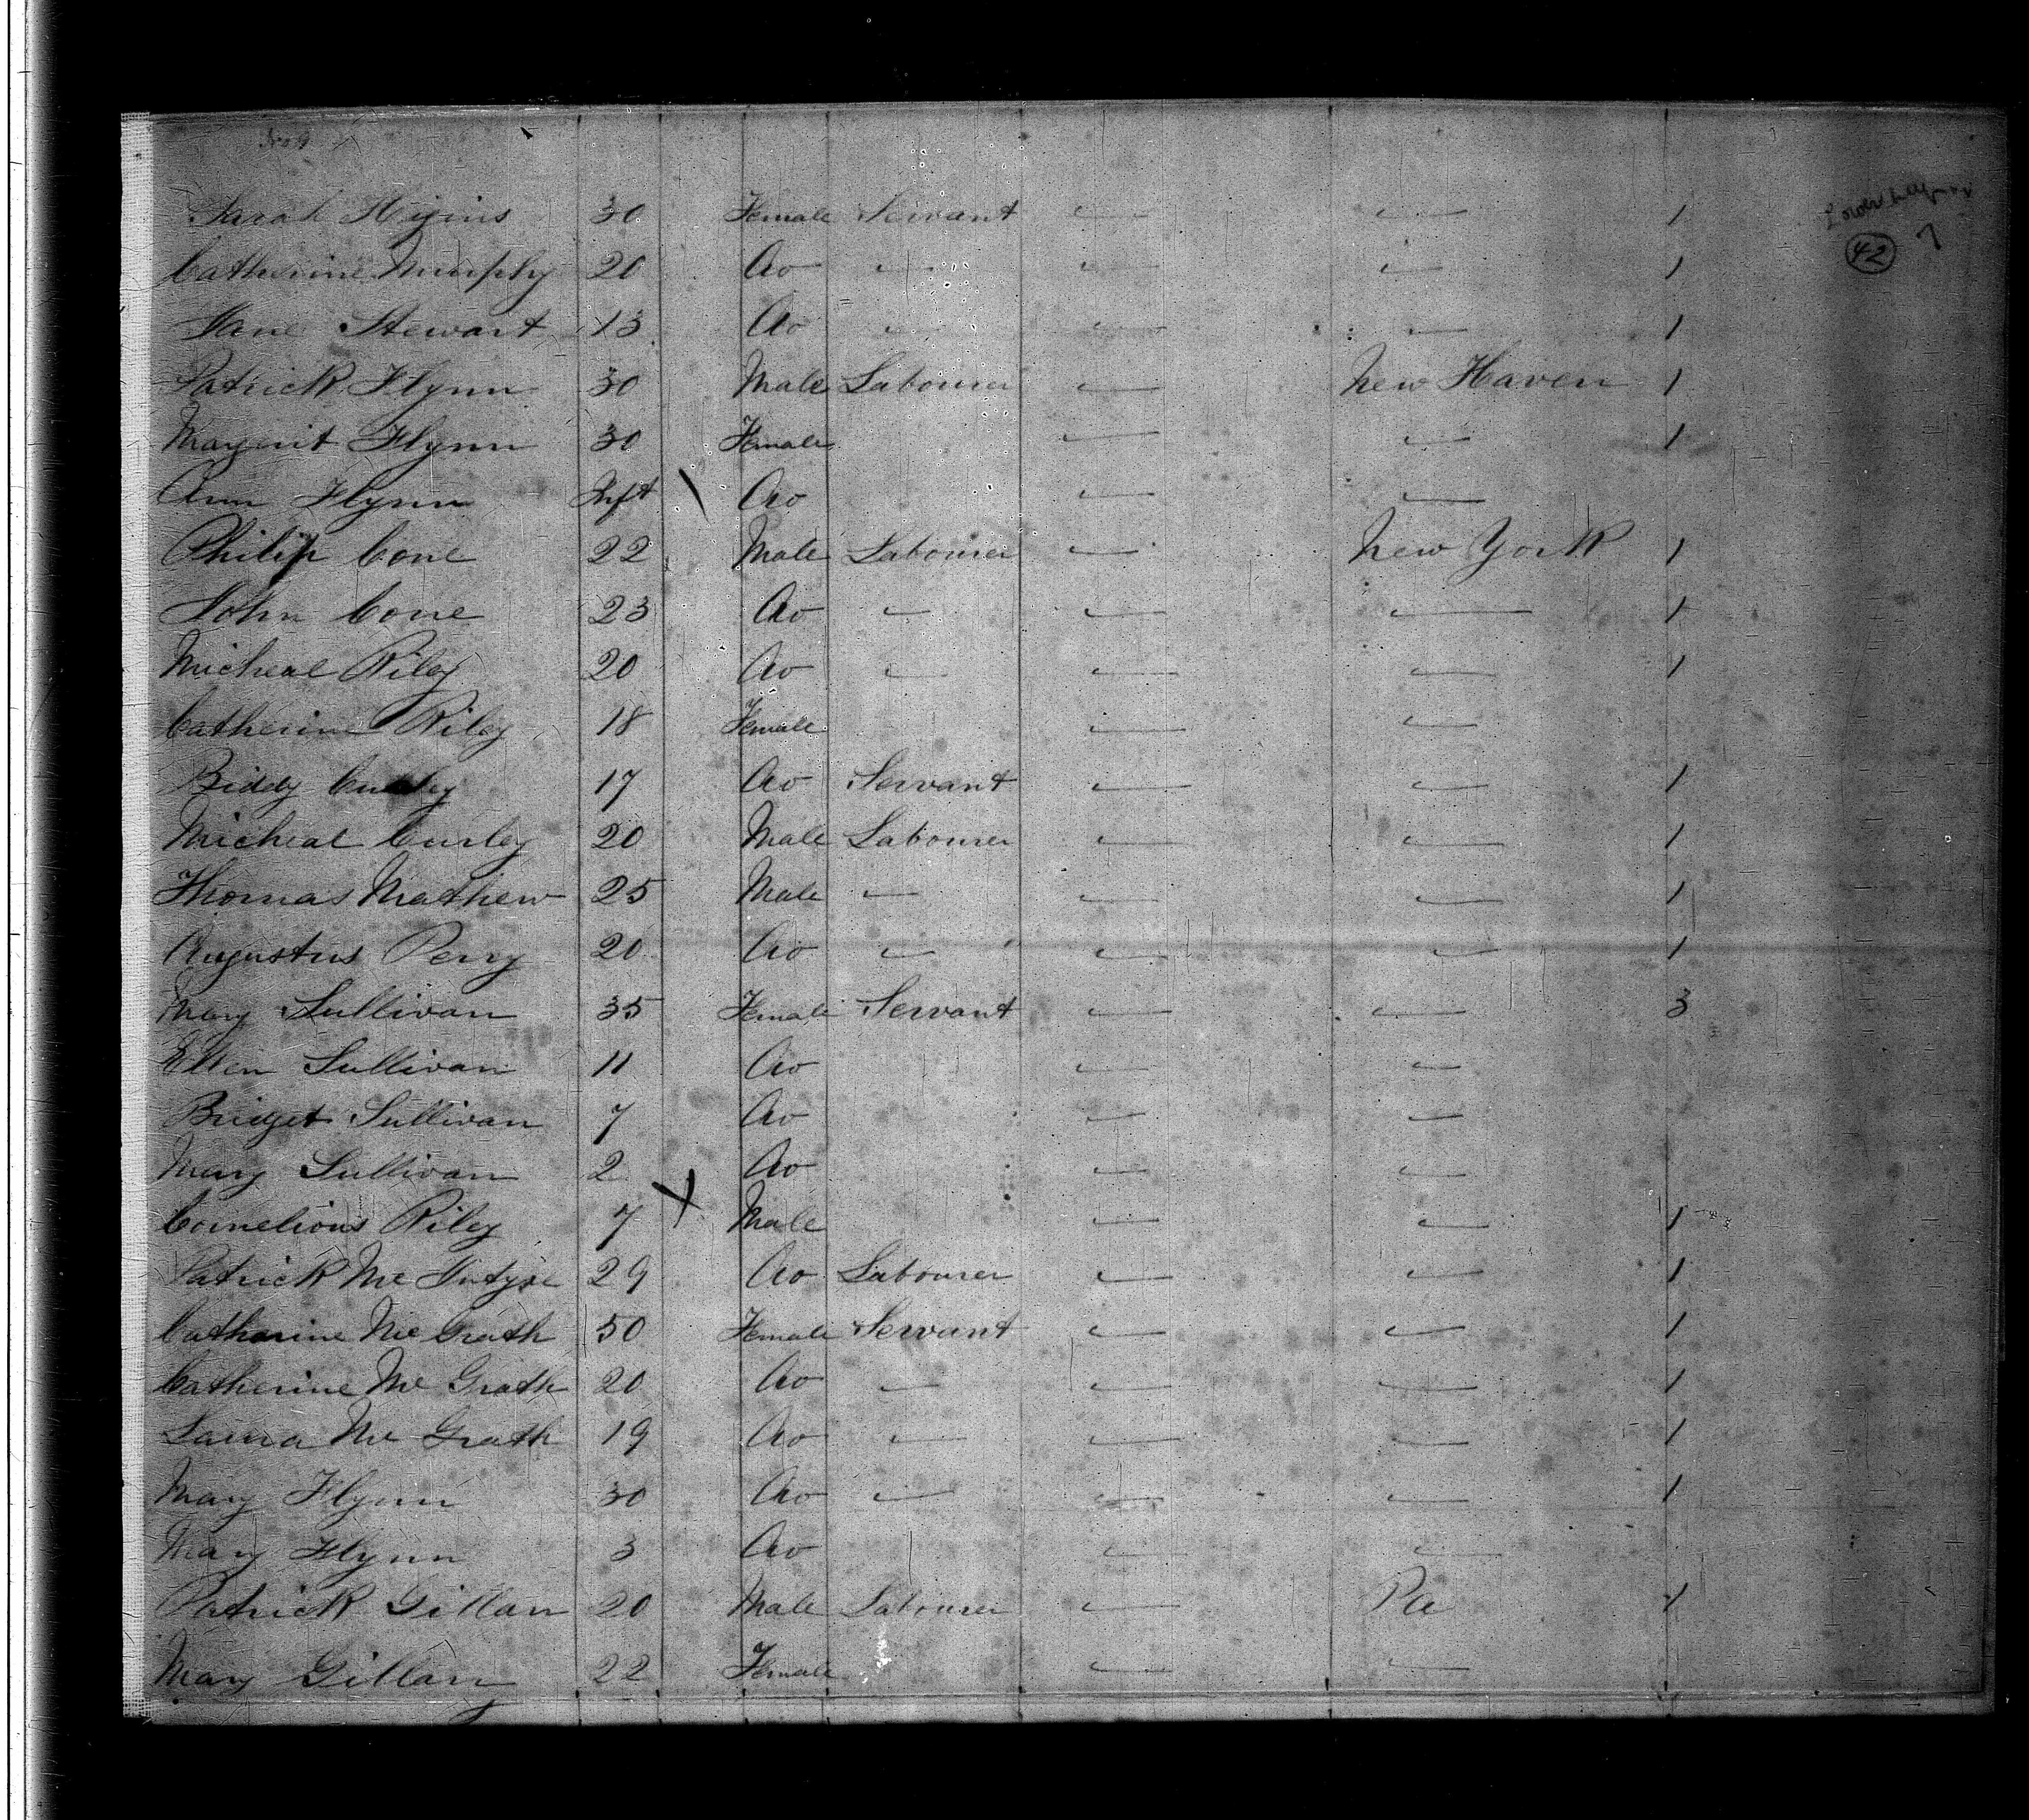 Sarah Higins 30 Female Servant — — 1
42 7
Catherine Murphy 20 Do — — — 1
Jane Stewart 13 Do — — — 1
Patrick Flynn 30 Male Labourer — New Haven 1
Margerit Flynn 30 Female — — 1
Ann Flynn Inft \ Do — —
Philip Cone 22 Male Labourer — New York 1
John Cone 23 Do — — — 1
Micheal Riley 20 Do — — — 1
Catherine Riley 18 Female — —
Biddy Curley 17 Do Servant — — 1
Micheal Curley 20 Male Labourer — — 1
Thomas Mathew 25 Male — — — 1
Augustus Perry 20 Do — — — 1
Mary Sullivan 35 Female Servant — — 3
Ellen Sullivan 11 Do — —
Bridget Sullivan 7 Do — —
Mary Sullivan 2 Do — —
Cornelious Riley 7 X Male — — 1
Patrick Mc Intyre 29 Do Labourer — — 1
Catharine Mc Grath 50 Female Servant — — 1
Catherine Mc Grath 20 Do — — — 1
Laura Mc Grath 19 Do — — — 1
Mary Flynn 30 Do — — — 1
Mary Flynn 3 Do — —
Patrick Gillan 20 Male Labourer — Pa 1
Mary Gillan 22 Female — —